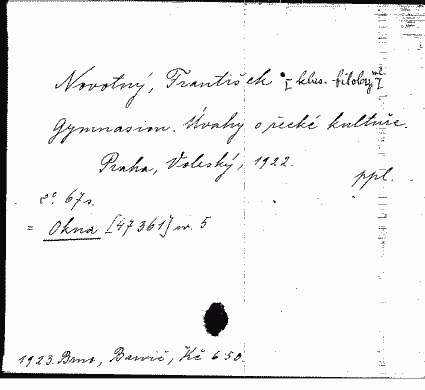 Novotný, František [klas. filolog]
Gymnasion. Úvahy o řecké kultuře.
Praha, Voleský, 1922.
ppl.
8° 67 s.
= Okna [47361] sv. 5
1923. Brno, Barvič, Kč 6.50.